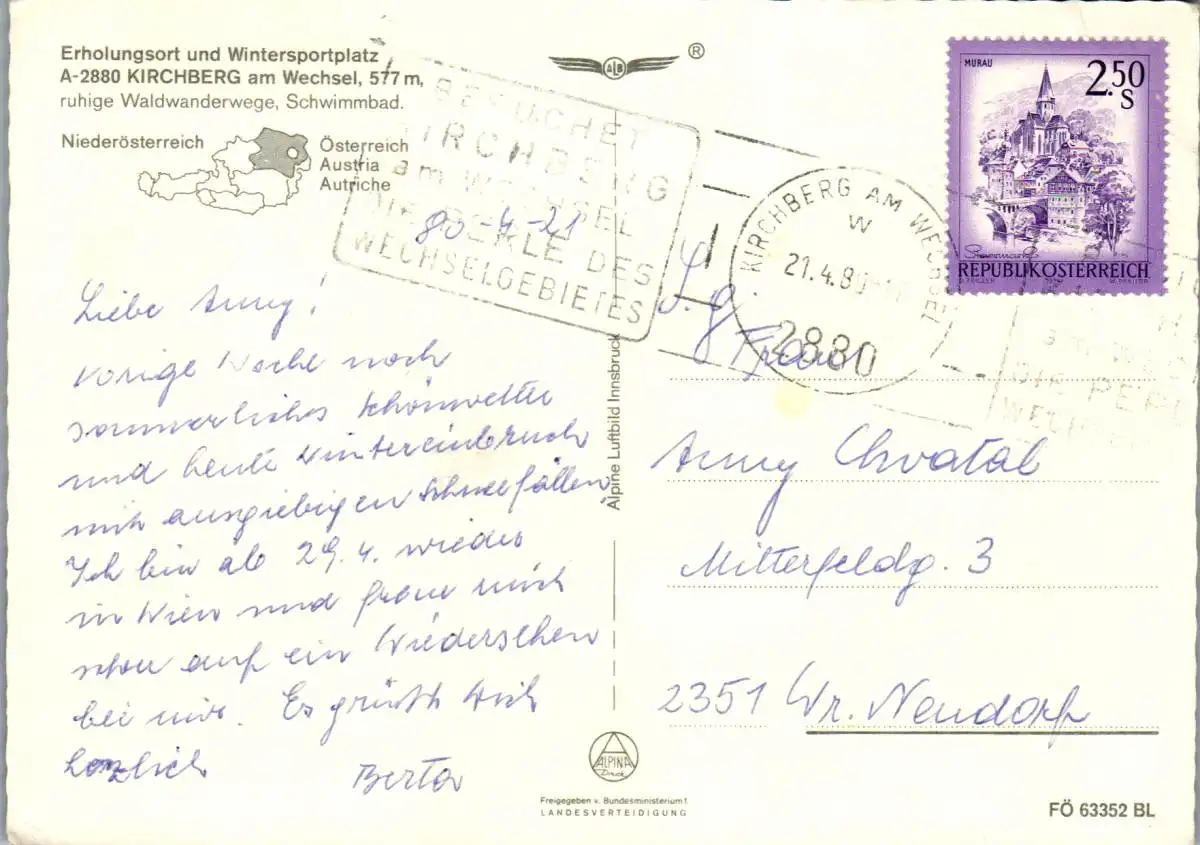 Erholungsort und Wintersportplatz
A-2880 KIRCHBERG am Wechsel, 577 m,
ruhige Waldwanderwege, Schwimmbad.
Niederösterreich
Österreich
Austria
Autriche
ALB
®
BESUCHET
KIRCHBERG
am WECHSEL
DIE PERLE DES
WECHSELGEBIETES
KIRCHBERG AM WECHSEL
W
21.4.80
2880
MURAU
2.50
S
Steiermark
REPUBLIK ÖSTERREICH
DIE PERL
80-4-21
Liebe Anny!
Vorige Woche noch
sommerliches Schönwetter
und heute Wintereinbruch
mit ausgiebigen Schneefällen
Ich bin ab 29.4. wieder
in Wien und freue mich
schon auf ein Wiedersehen
bei mir. Es grüßt Dich
herzlich
Berta
Alpine Luftbild Innsbruck
S. g.
Frau
Anny Chvatal
Mitterfeldg. 3
2351 Wr. Neudorf
ALPINA
Druck
Freigegeben v. Bundesministerium f.
LANDESVERTEIDIGUNG
FÖ 63352 BL